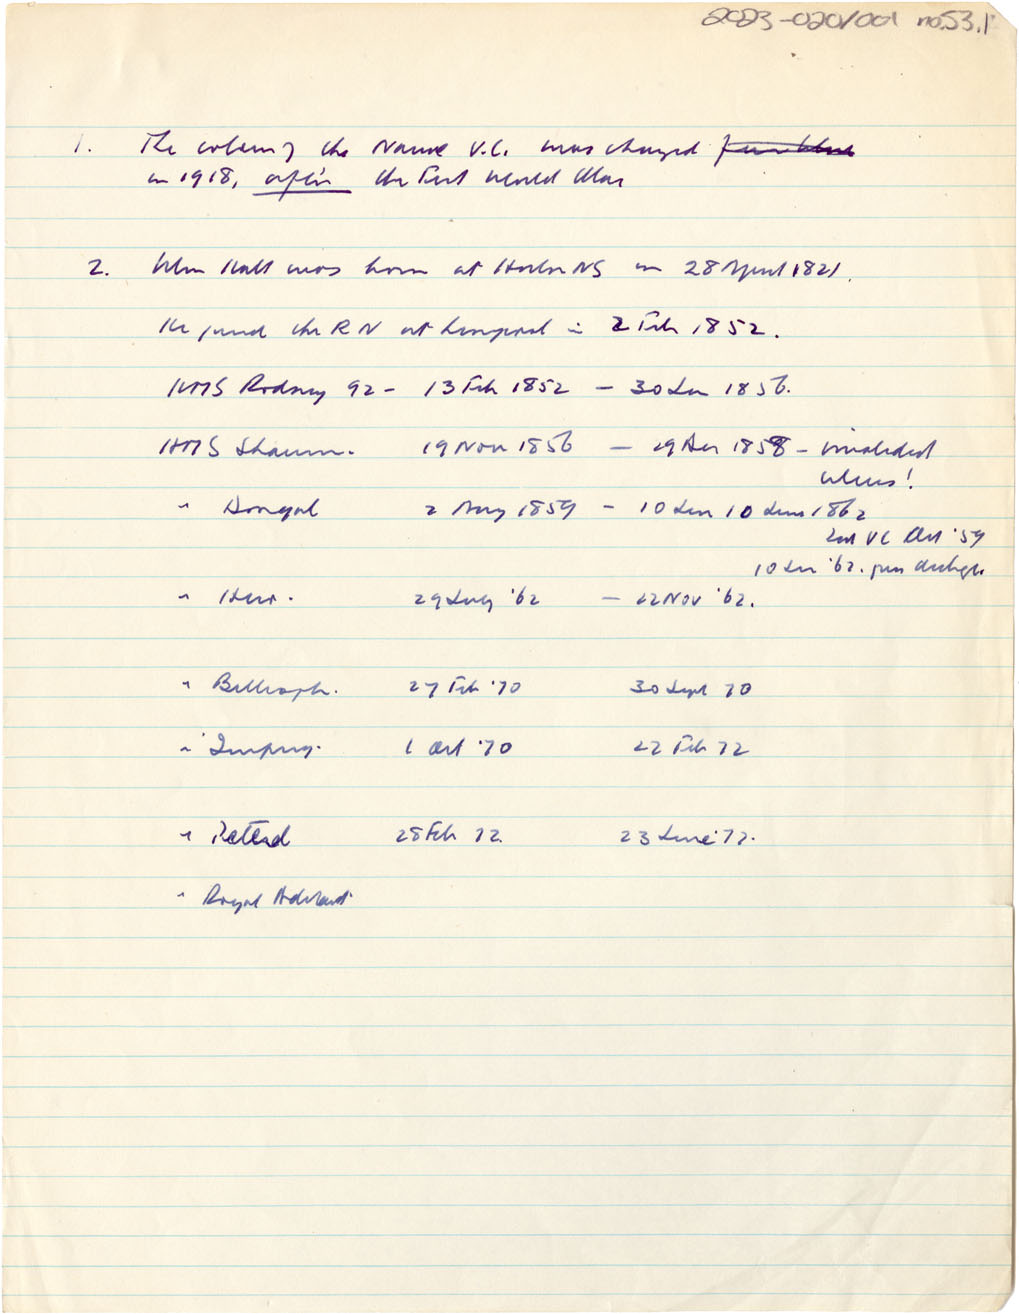 2023-020/001 no.53.1
1. The colour of the Naval V.C. was changed from blue
in 1918, after the First World War
2. Wm Hall was born at Horton NS on 28 April 1821.
He joined the RN at Liverpool in 2 Feb 1852.
HMS Rodney 92 - 13 Feb 1852 - 30 Jan 1856.
HMS Shannon. 19 Nov 1856 - 29 Dec 1858 - invalided
ulcers!
" Donegal 2 Aug 1859 - 10 Jun 10 June 1862
VC Oct '59
10 Jun '62.
" Hero. 29 July '62 - 22 Nov '62.
" Bellerophon. 27 Feb '70 30 Sept 70
" Impreg. 1 Oct '70 22 Feb 72
" Peterel 28 Feb 72. 23 June '72.
" Royal Adelaide